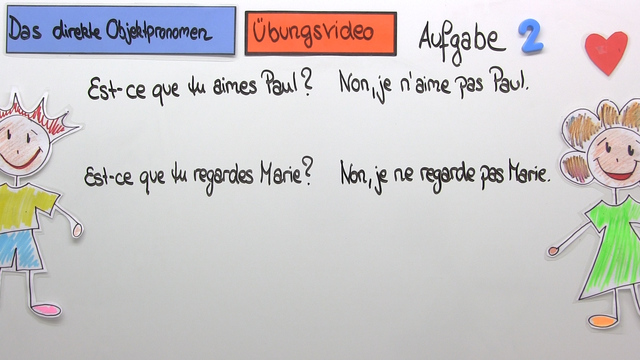 Das direkte Objektpronomen
Übungsvideo
Aufgabe 2
Est-ce que tu aimes Paul? Non, je n'aime pas Paul.
Est-ce que tu regardes Marie? Non, je ne regarde pas Marie.